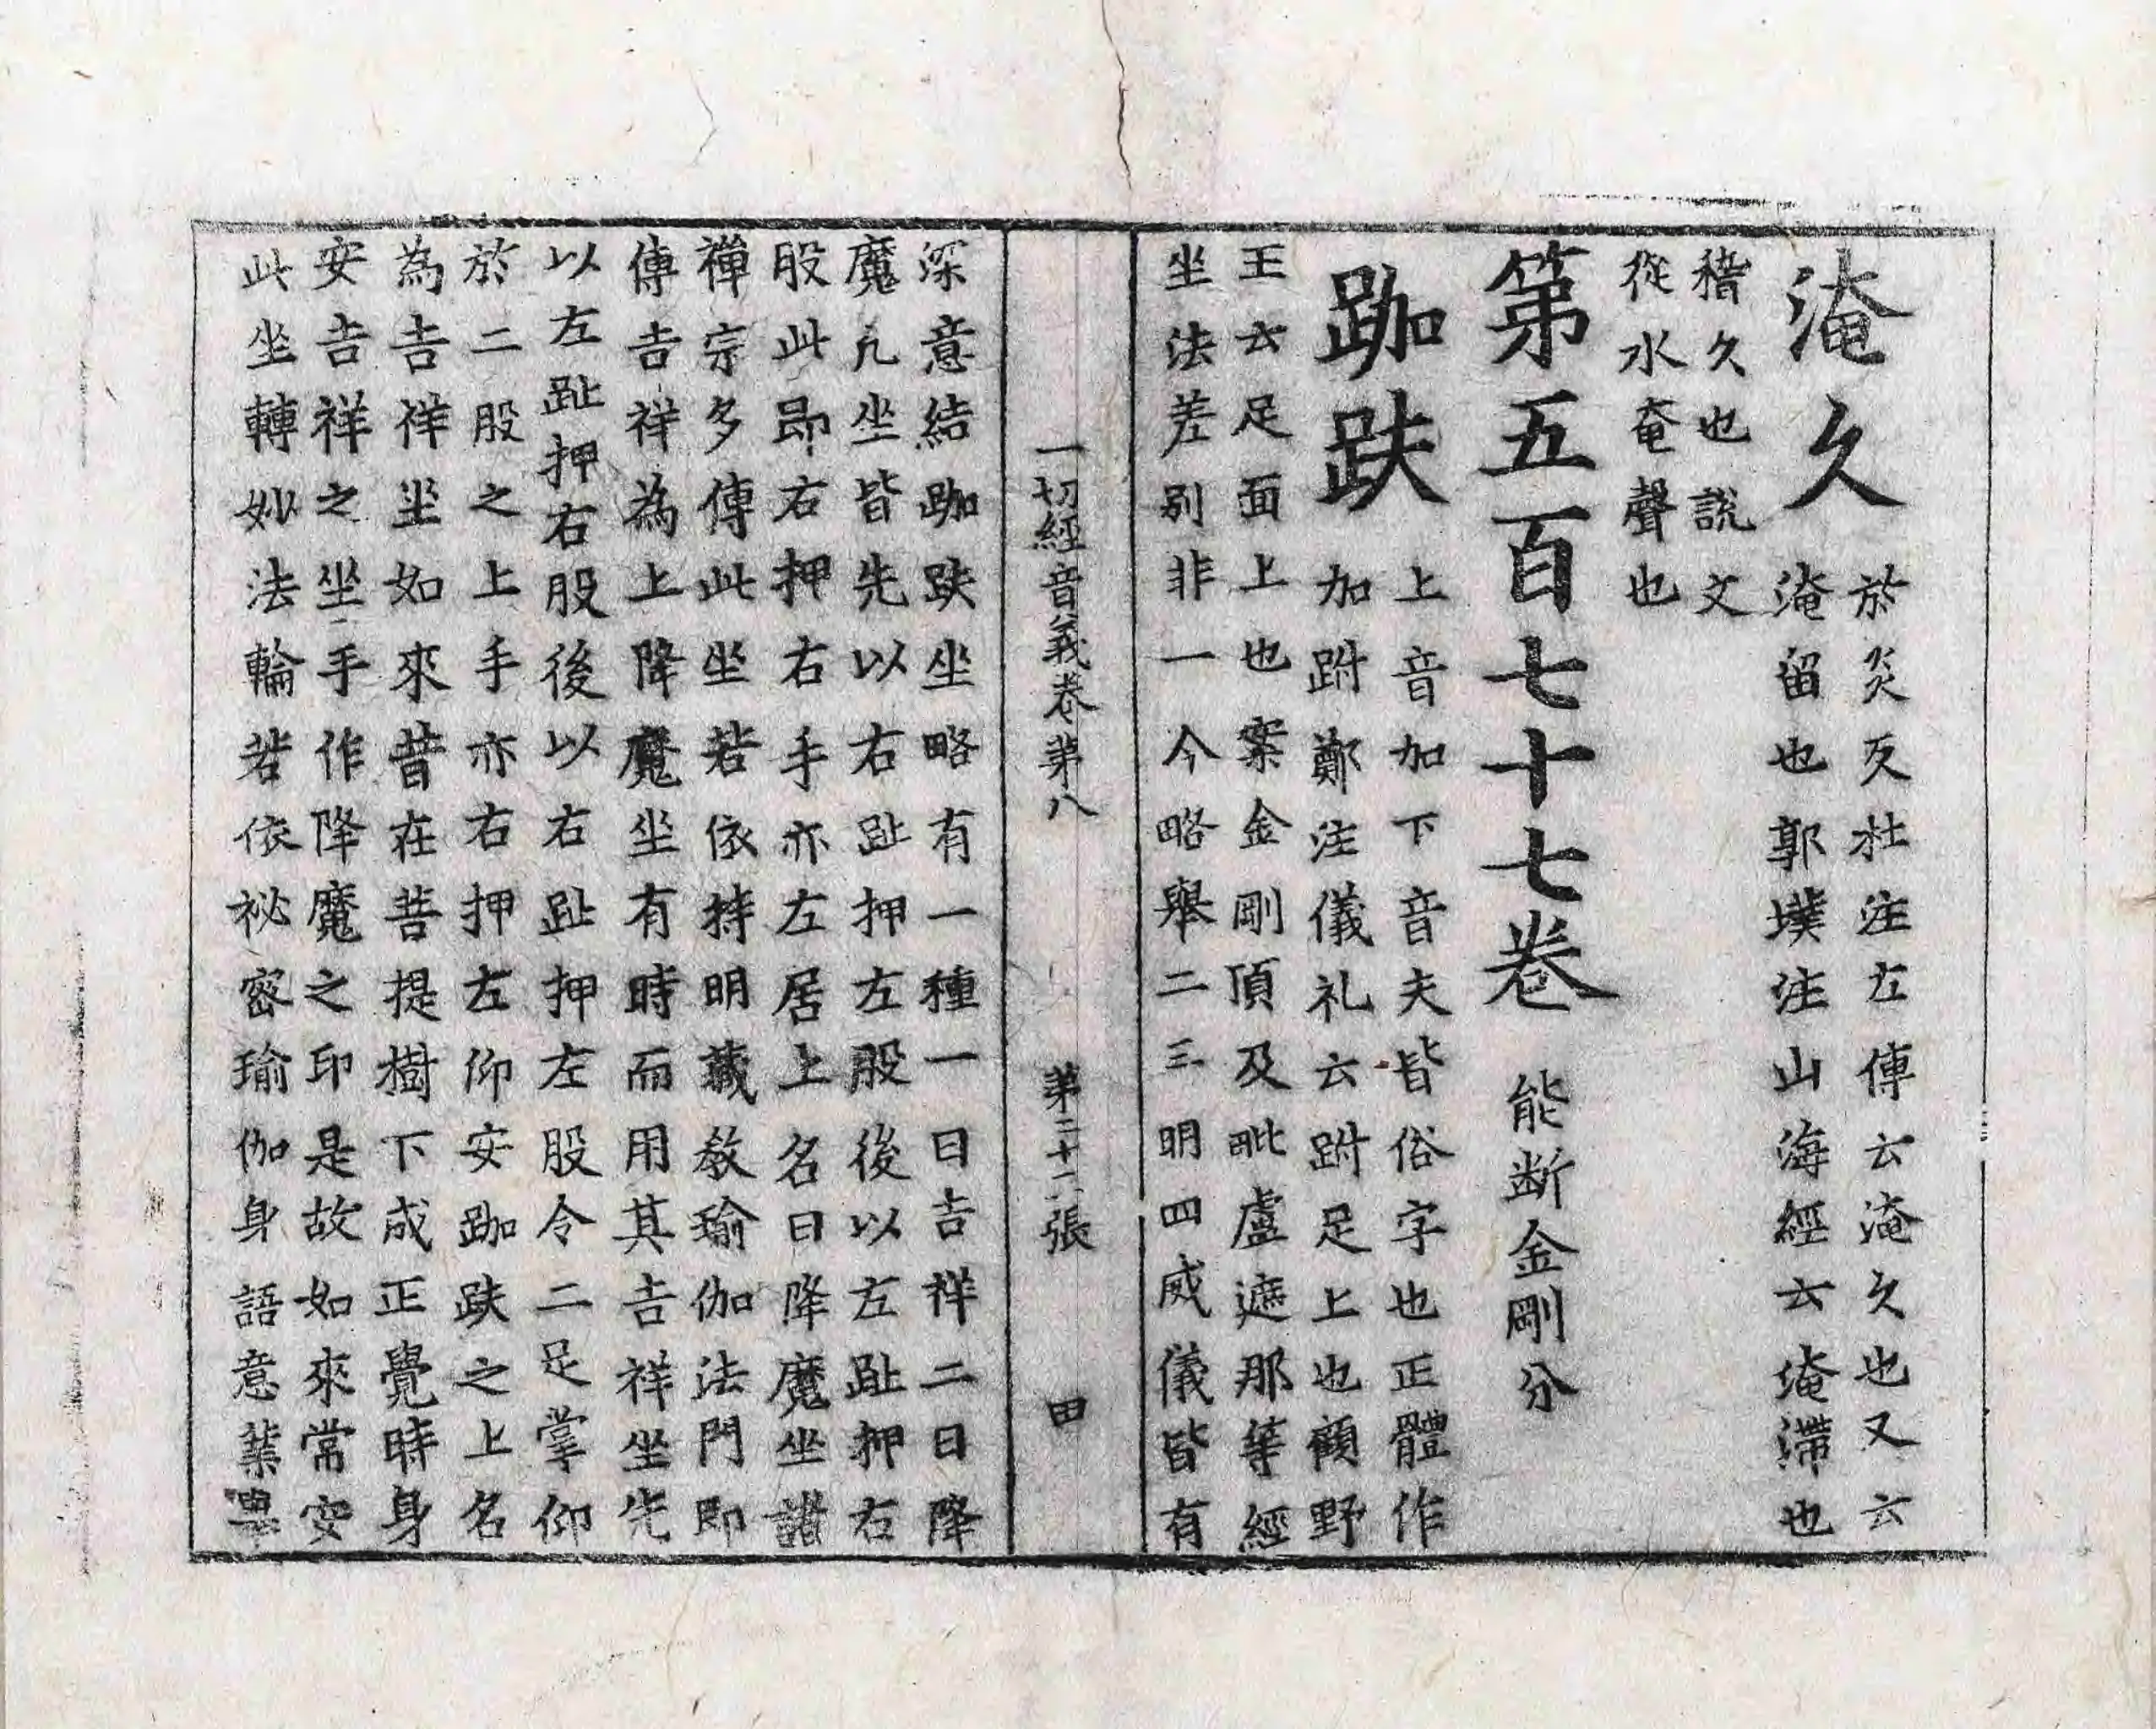 淹久
於炎反杜注左傳云淹久也又云
淹留也郭墣注山海經云淹滯也
稽久也說文
從水奄聲也
第五百七十七卷 能断金剛分
跏趺
上音加下音夫皆俗字也正體作
加跗鄭注儀礼云跗足上也顧野
王云足面上也案金剛頂及毗盧遮那等經
坐法差别非一今略舉二三明四威儀皆有
一切經音義卷第八 第二十二張 田
深意結跏趺坐略有一種一曰吉祥二曰降
魔凢坐皆先以右趾押左股後以左趾押右
股此即右押右手亦左居上名曰降魔坐諸
禪宗多傳此坐若依持明藏教瑜伽法門即
傳吉祥為上降魔坐有時而用其吉祥坐先
以左趾押右股後以右趾押左股令二足掌仰
於二股之上手亦右押左仰安跏趺之上名
為吉祥坐如來昔在菩提樹下成正覺時身
安吉祥之坐手作降魔之印是故如來常安
此坐轉妙法輪若依祕密瑜伽身語意業舉